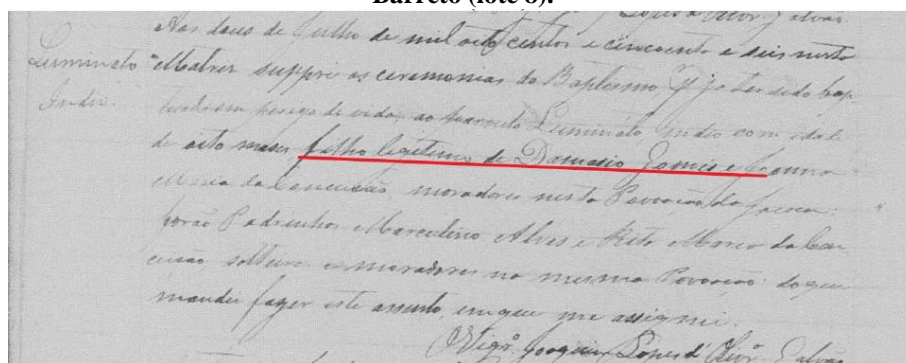 Barreto (lote 8).
Lopes d' Olivr.ª Galvão
Aos dous de Julho de mil oito centos e cincoenta e seis nesta
Luminato Indio.
Matris suppri as ceremonias do Baptismo, p.r ja ter sido bap-
tisado em perigo de vida, ao parvulo Luminato, indio com idade
de oito meses filho legitimo de Damasio Gomes e Joanna
Maria da Conceição, moradores nesta Povoação da
forão Padrinhos Marcelino Alves e Rita Maria da Con-
ceição solteira e moradores na mesma Povoação do que
mandei fazer este assento, em que me assignei.
O Vigr.º Joaquim Lopes d' Olivr.ª Galvão